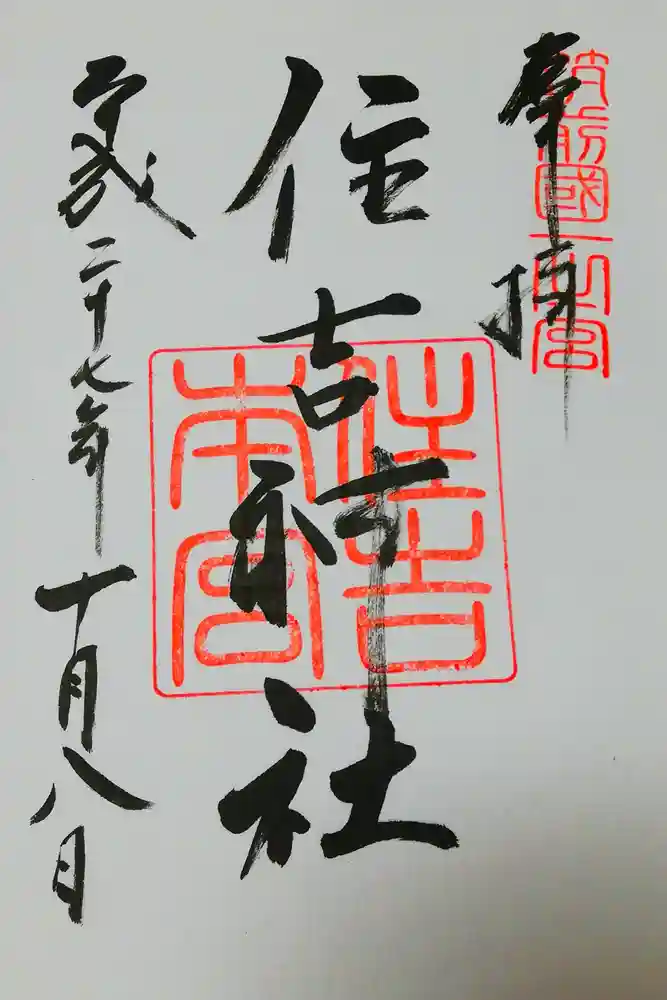 奉拝
筑前國一之宮
住吉神社
住吉
本宮
平成二十七年十月八日